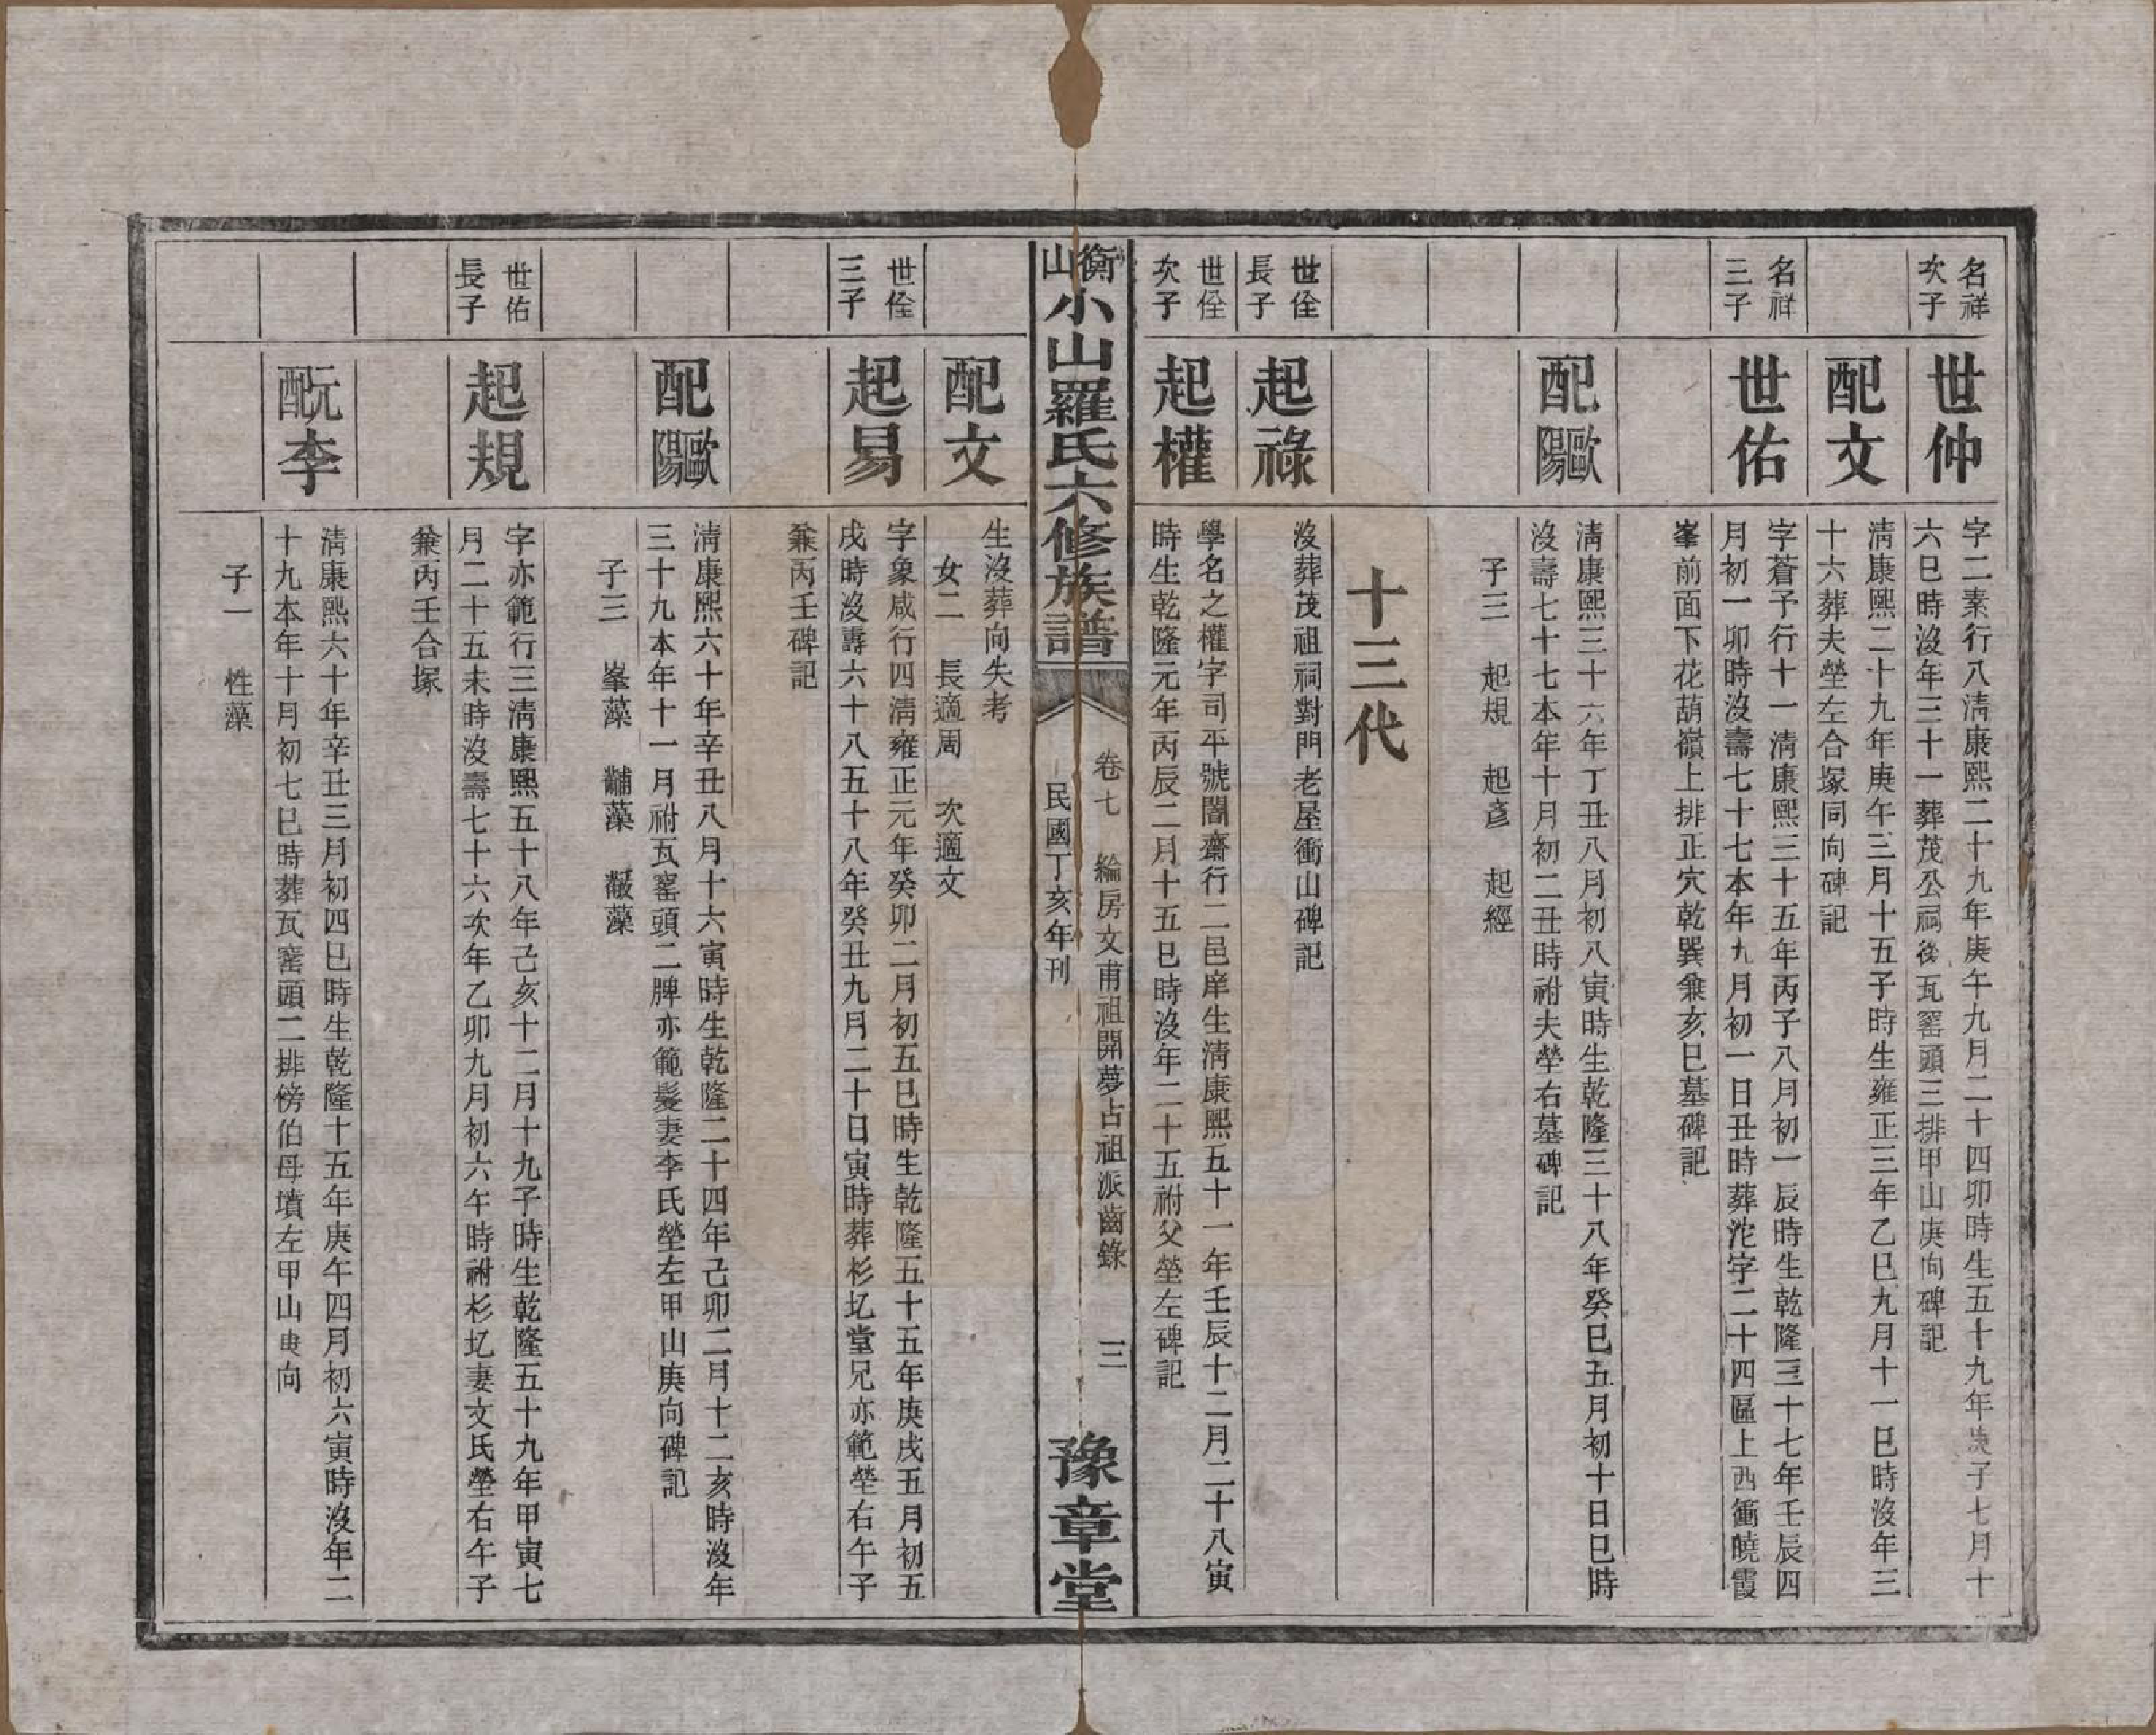 名祥
次子
世仲
字二素行八清康熙二十九年庚午九月二十四卯時生五十九年庚子七月十
六巳時沒年三十一葬茂公祠後瓦窰頭三排甲山庚向碑記
配文
清康熙二十九年庚午三月十五子時生雍正三年乙巳九月十一巳時沒年三
十六葬夫塋左合塚同向碑記
名祥
三子
世佑
字蒼予行十一清康熙三十五年丙子八月初一辰時生乾隆三十七年壬辰四
月初一卯時沒壽七十七本年九月初一日丑時葬沱字二十四區上西衝曉霞
峯前面下花葫嶺上排正穴乾巽兼亥巳墓碑記
配歐陽
清康熙三十六年丁丑八月初八寅時生乾隆三十八年癸巳五月初十日巳時
沒壽七十七本年十月初二丑時祔夫塋右墓碑記
子三 起規 起彥 起經
十三代
世佺
長子
起祿
沒葬茂祖祠對門老屋衝山碑記
世佺
次子
起權
學名之權字司平號闇齋行二邑庠生清康熙五十一年壬辰十二月二十八寅
時生乾隆元年丙辰二月十五巳時沒年二十五祔父塋左碑記
衡山小山羅氏六修族譜
卷七 綸房文甫祖開夢占祖派齒錄 三
民國丁亥年刊
豫章堂
配文
生沒葬向失考
女二 長適周 次適文
世佺
三子
起易
字象咸行四清雍正元年癸卯二月初五巳時生乾隆五十五年庚戌五月初五
戌時沒壽六十八五十八年癸丑九月二十日寅時葬杉圠堂兄亦範塋右午子
兼丙壬碑記
配歐陽
清康熙六十年辛丑八月十六寅時生乾隆二十四年己卯二月十二亥時沒年
三十九本年十一月祔瓦窰頭二脾亦範髮妻李氏塋左甲山庚向碑記
子三 峯藻 黼藻 黻藻
世佑
長子
起規
字亦範行三清康熙五十八年己亥十二月十九子時生乾隆五十九年甲寅七
月二十五未時沒壽七十六次年乙卯九月初六午時祔杉圠妻文氏塋右午子
兼丙壬合塚
元配李
清康熙六十年辛丑三月初四巳時生乾隆十五年庚午四月初六寅時沒年二
十九本年十月初七巳時葬瓦窰頭二排傍伯母墳左甲山庚向
子一 性藻